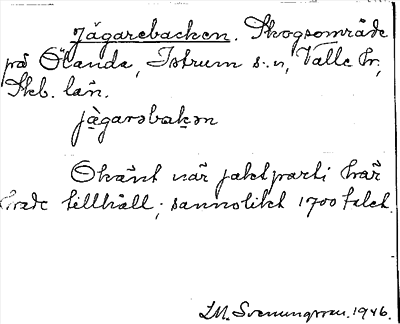 Jägarebacken. Skogsområde
på Ölanda, Istrum s:n, Valle hr,
Skb. län.
jägarəbakən
Okänt när jaktparti här
hade tillhåll; sannolikt 1700 talet.
L.M. Svenungsson. 1946.